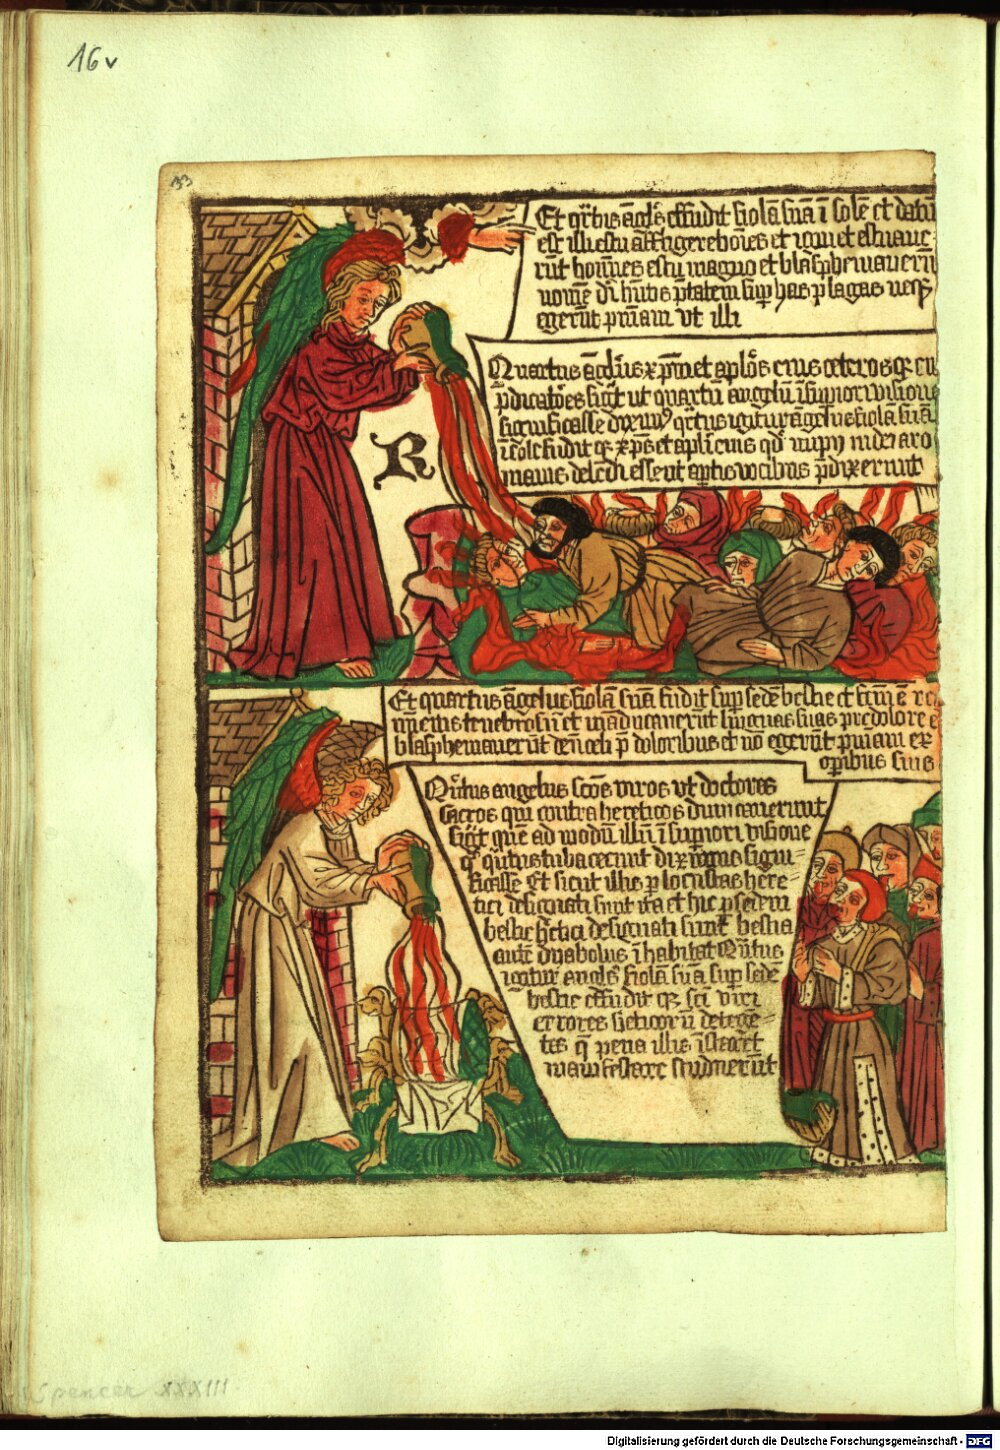 16v
33
Et qrtus āgls effudit fiolā suā ī solē et datū
est illi estu affligere hoīes et igni et estuaue
rūt homines estu magno et blasphemauerūt
nomē dī hntis ptatem sup has plagas nesq;
egerūt pniam vt illi
Quartus āgelus xpm et aplos eius ceterosq; eius
pdicatores sigt ut quartū angelū ī supiori visione
significasse diximus qrtus igitur angelus fiolā suā
ī solē fudit q xps et apli eius qd impij iudei a ro
manis delendi essent aptis vocibus pdixerunt
R
Et quartus āgelus fiolā suā fudit sup sedē bestie et ē re
eius tenebrosū et māducauerūt linguas suas pre dolore e
blasphemauerūt deū celi p doloribus et nō egerūt pniam ex
opibus suis
Qrtus angelus scōs viros vt doctores
sacros qui contra hereticos
sigt quē ad modū illū ī supiori visione
q qrtus tuba cecinit diximus signi
ficasse Et sicut illis p locustas here
tici designati sunt ita et hic p sedem
bestie designati sunt bestia
autē dyabolus īhabitat Qrtus
igitur angls fiolā suā sup sedē
bestie effudit q sci viri
errores detegē
tes q pena illis īstaret
manifestare studuerūt
Spencer XXXIII
Digitalisierung gefördert durch die Deutsche Forschungsgemeinschaft - DFG